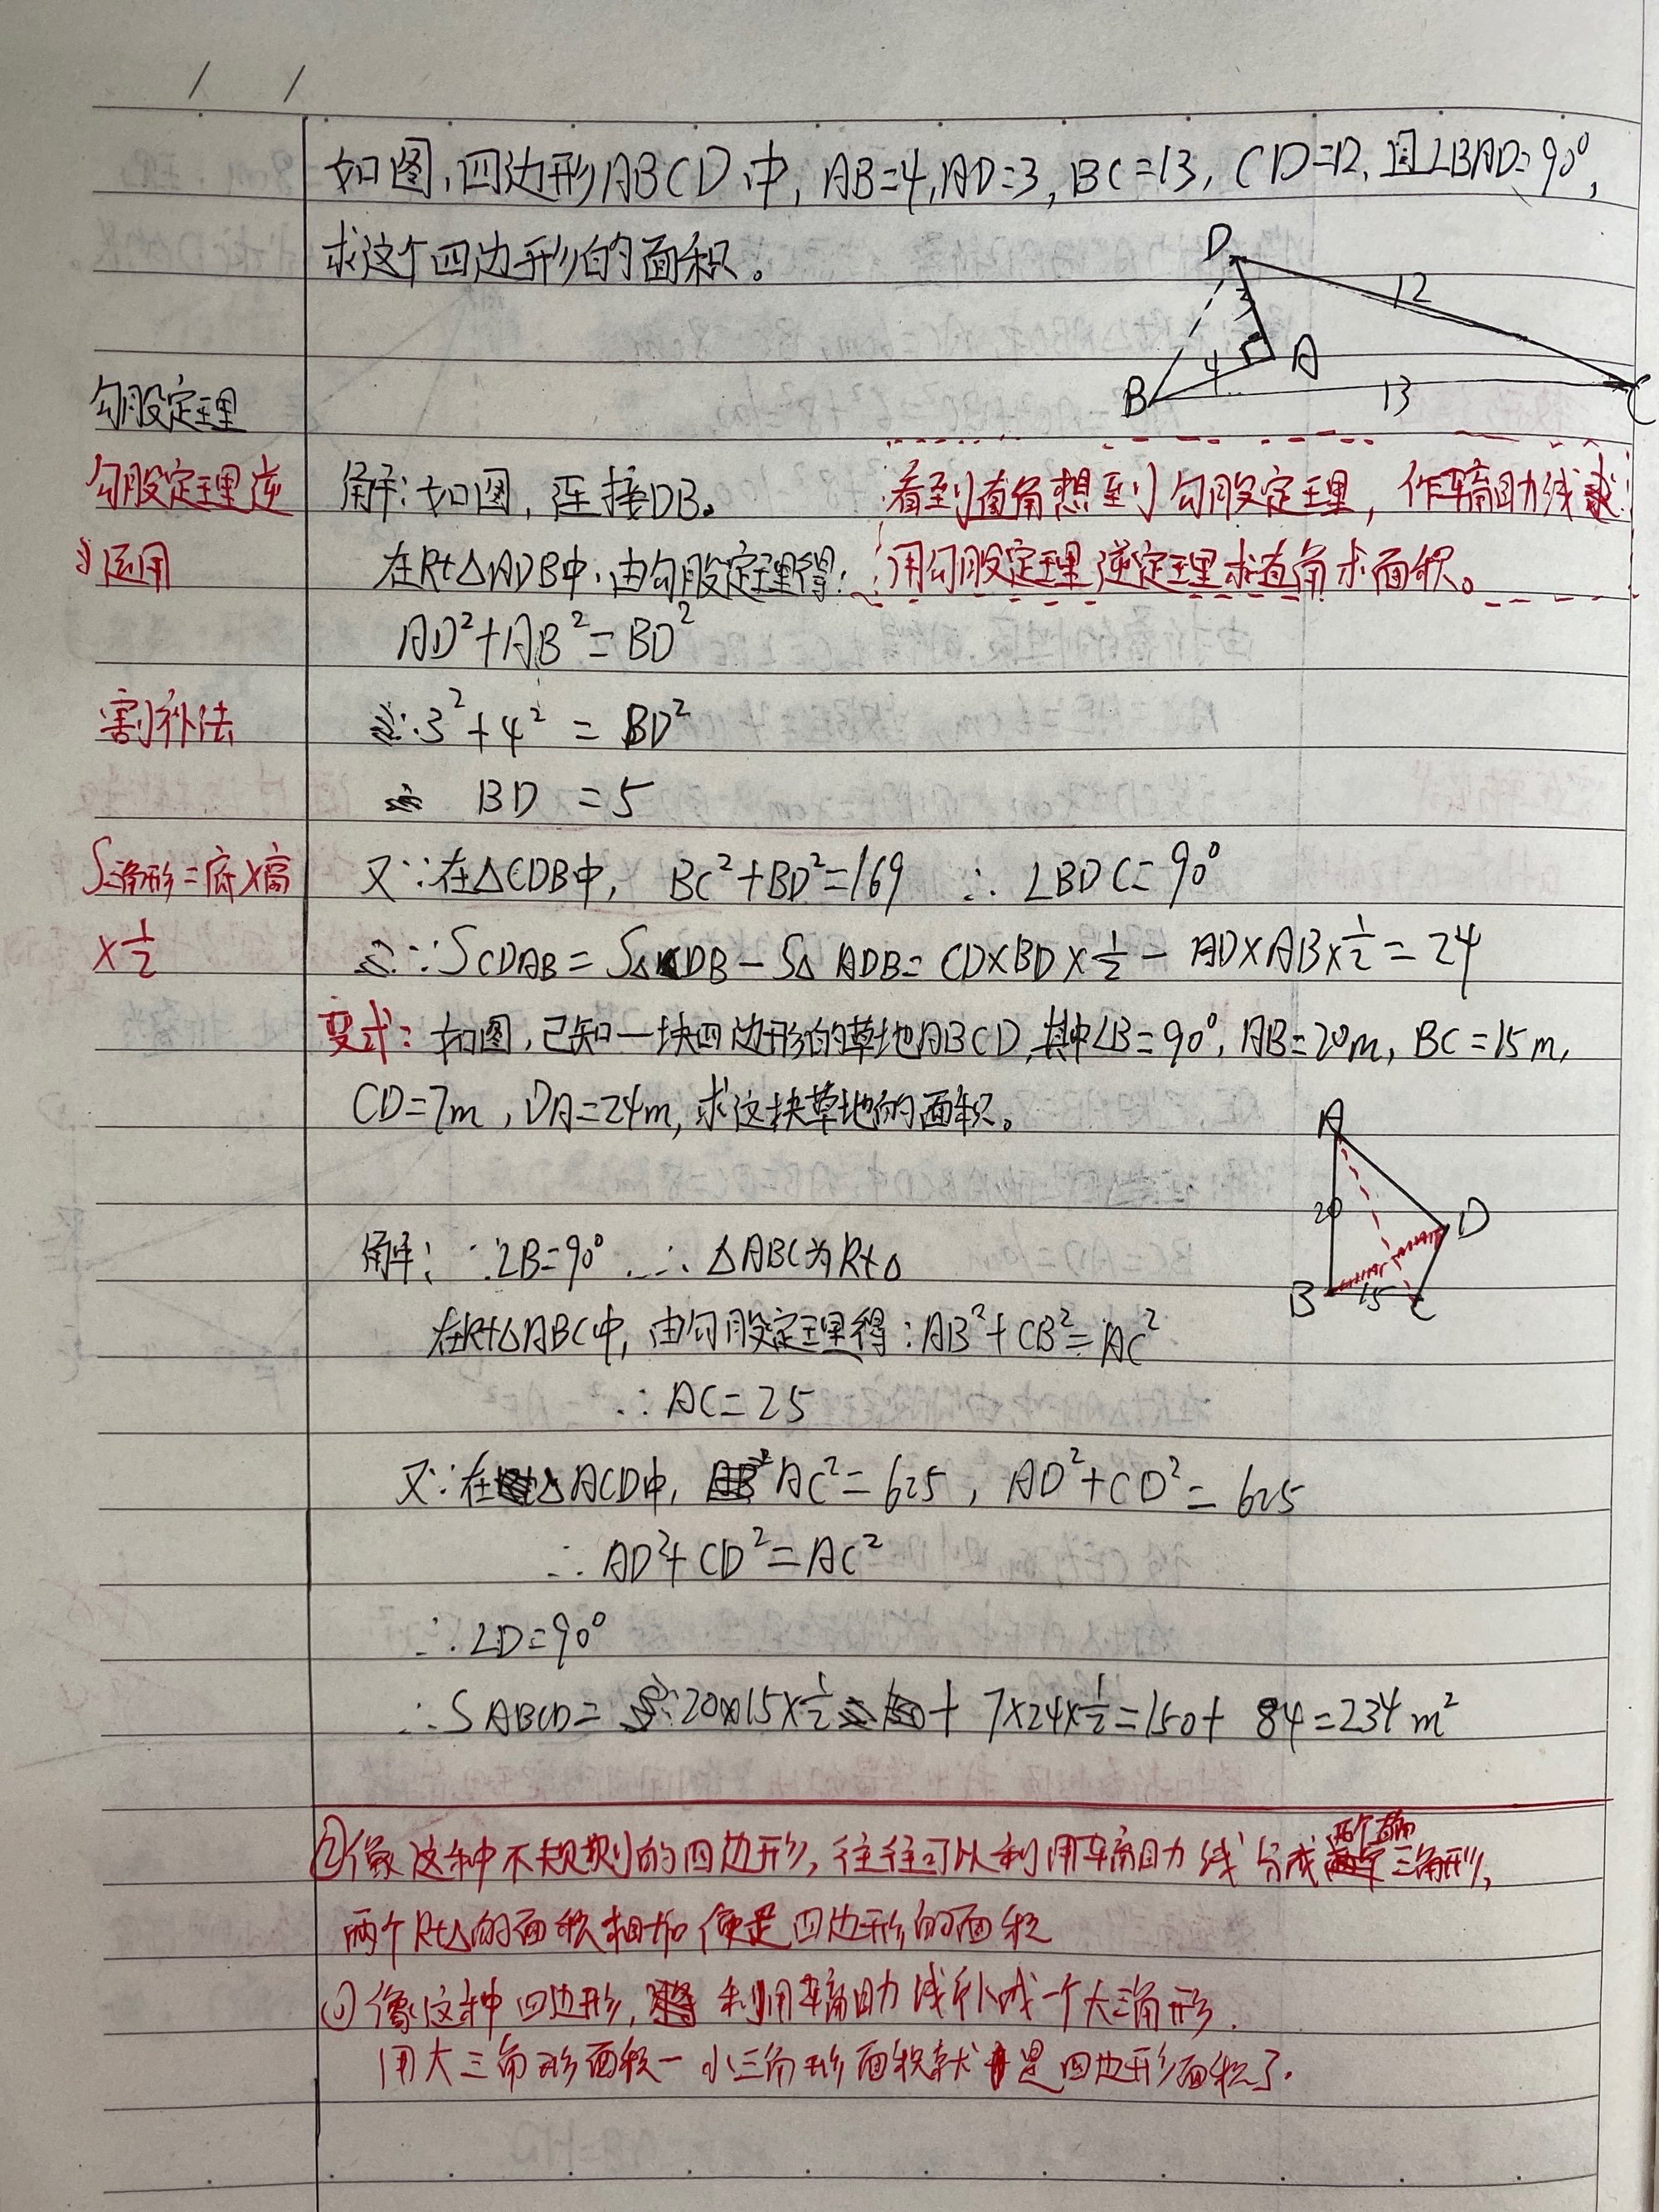 如图,四边形ABCD中,AB=4,AD=3,BC=13,CD=12,且∠BAD=90°,
求这个四边形的面积。
D
3
12
4
A
B
13
C
勾股定理
勾股定理逆
运用
割补法
S三角形=底×高
×1/2
解:如图,连接DB。
看到直角想到勾股定理,作辅助线
用勾股定理逆定理求直角求面积。
在Rt△ADB中,由勾股定理得:
AD²+AB²=BD²
3²+4²=BD²
BD=5
又∵在△CDB中, BC²+BD²=169 ∴∠BDC=90°
∵SCDAB=S△CDB-S△ADB=CD×BD×1/2-AD×AB×1/2=24
变式:如图,已知一块四边形的草地ABCD,其中∠B=90°,AB=20m,BC=15m,
CD=7m,DA=24m,求这块草地的面积。
A
20
D
B
15
C
解:∵∠B=90° ∴△ABC为Rt△
在Rt△ABC中,由勾股定理得:AB²+CB²=AC²
∴AC=25
又∵在△ACD中, AC²=625,AD²+CD²=625
∴AD²+CD²=AC²
∴∠D=90°
∴SABCD=20×15×1/2+7×24×1/2=150+84=234m²
②像这种不规则的四边形,往往可以利用辅助线分成两个直角三角形,
两个Rt△的面积相加便是四边形的面积
①像这种四边形,利用辅助线补成一个大三角形.
用大三角形面积-小三角形面积就是四边形面积了.